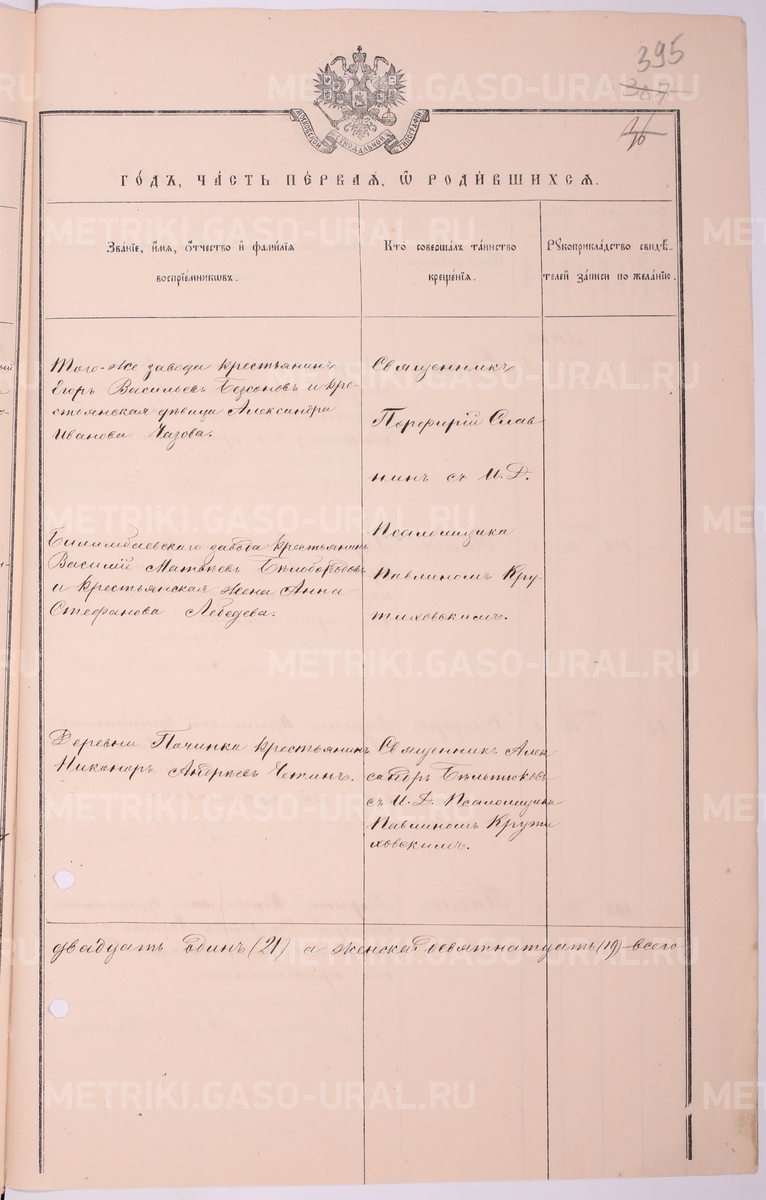 395
387
36
МОСКОВСКОЙ СѴНОДАЛЬНОЙ ТИПОГРАФІИ
ГО́ДЪ, ЧА́СТЬ ПЕ́РВАЯ, Ѡ҆ РОДИ́ВШИХСЯ.
Зва́нїе, и҆́мя, ѻ҆́тчество и҆ фами́лїя
воспрїе́мникѡвъ.
Кто̀ соверша́лъ та́инство
креще́нїѧ.
Рꙋкоприкла́дство свидѣ́-
телей за́писи по жела́нїю.
Того-же завода крестьянинъ
Егоръ Васильевъ Безсоновъ и кре-
стьянская дѣвица Александра
Иванова Чазова.
Священникъ
Порфирій Слав
нинъ съ И. Д.
Псаломщика
Павлиномъ Кру-
тиховскимъ.
Билимбаевскаго завода крестьянинъ
Василій Матвѣевъ Бѣлобородовъ
и крестьянская жена Анна
Стефанова Лебедева.
Деревни Починка крестьянинъ
Никаноръ Андреевъ Четинъ.
Священникъ Алек
сандръ Бѣльтюковъ
съ И. Д. Псаломщика
Павлиномъ Крути
ховскимъ.
двадцать одинъ (21) а женска девятнатцать (19) всего
METRIKI.GASO-URAL.RU